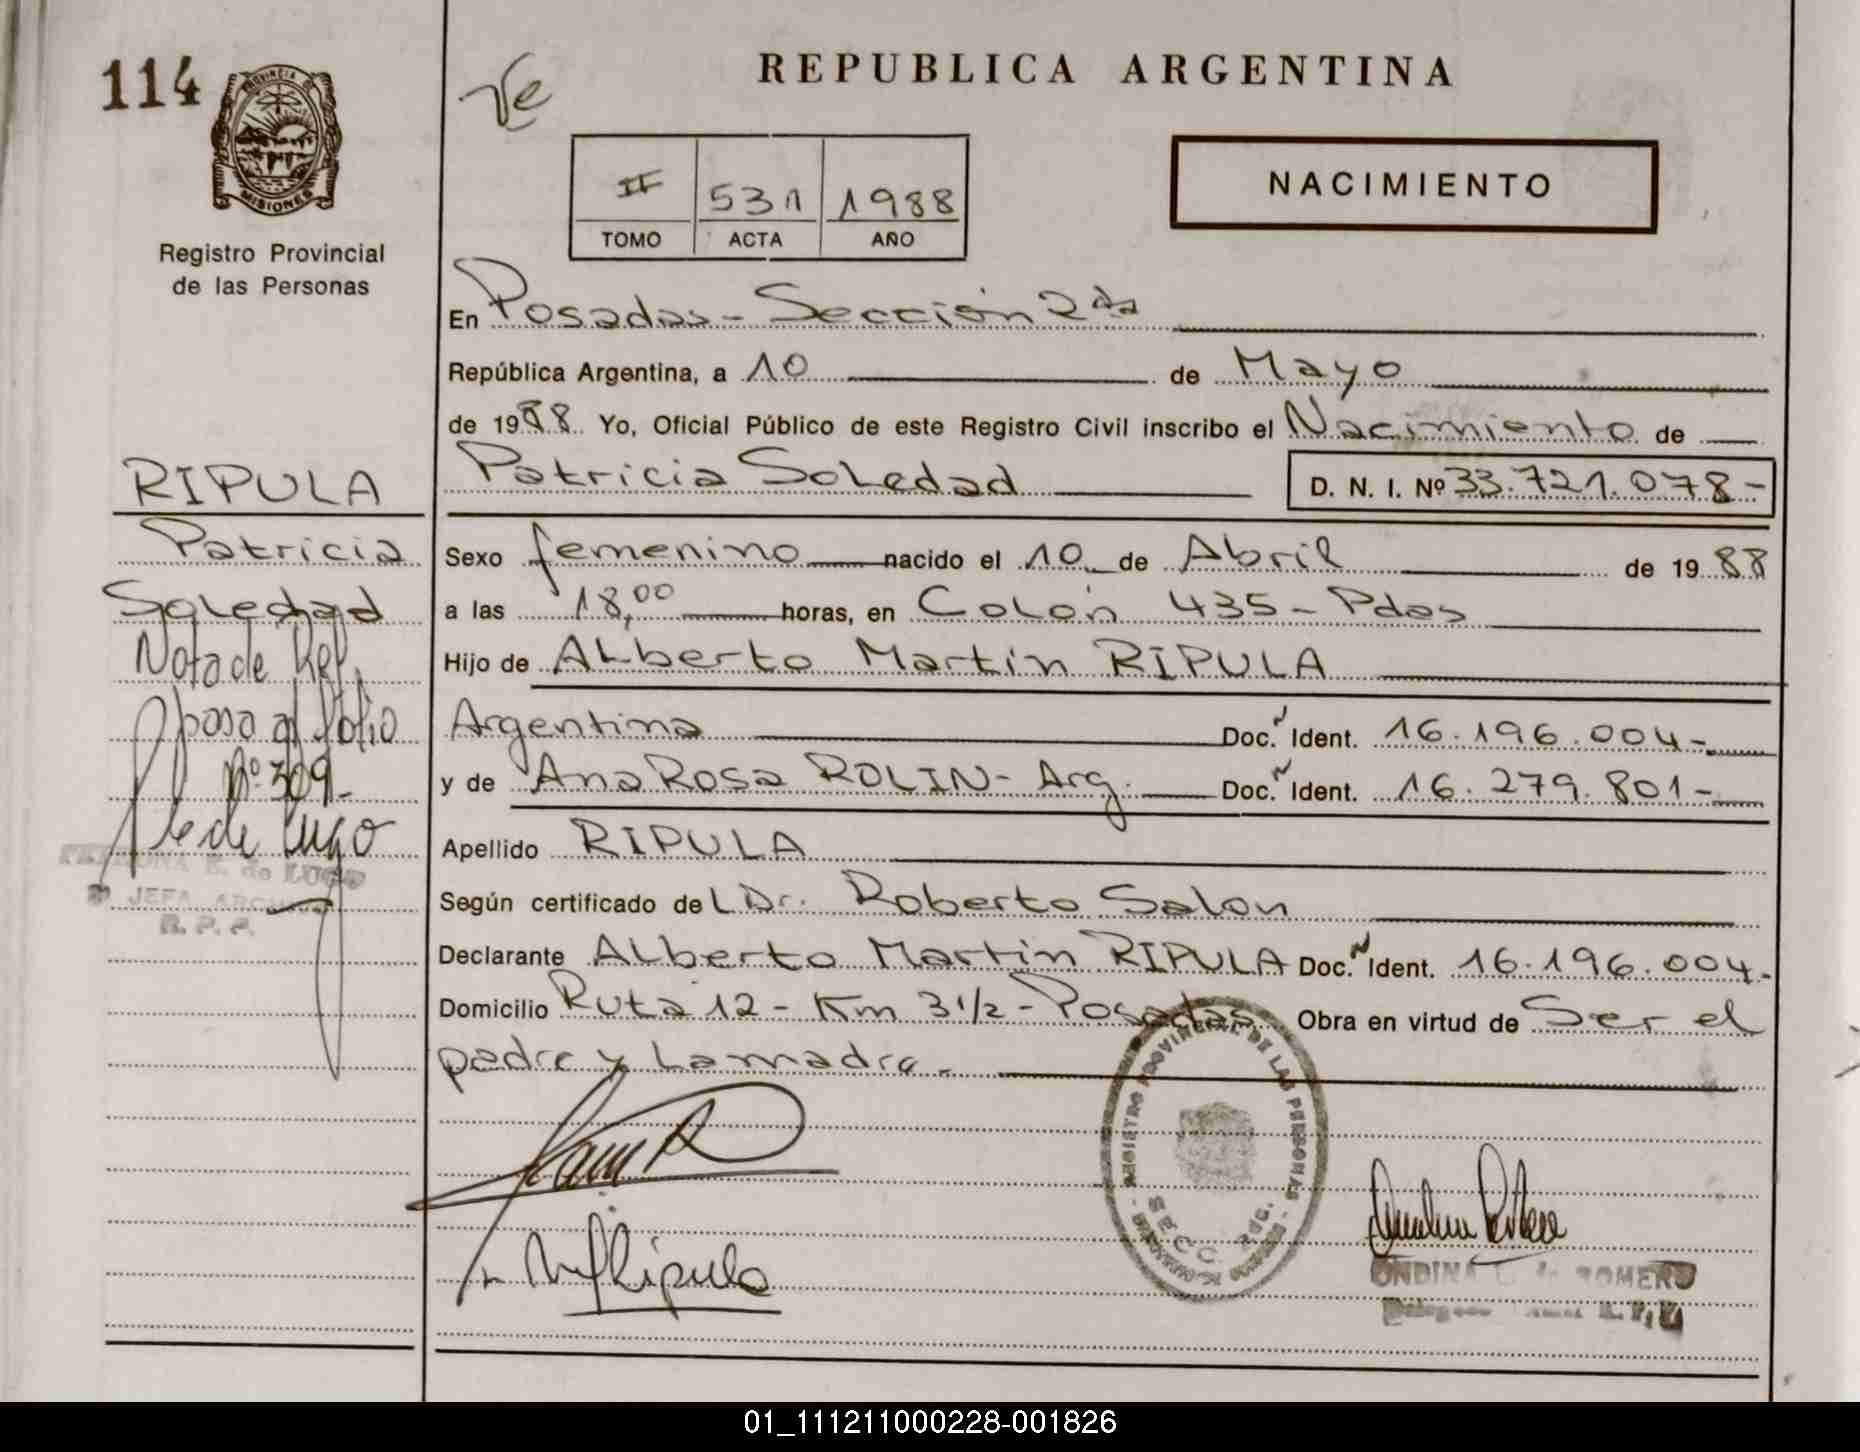 114
PROVINCIA
MISIONES
Registro Provincial
de las Personas
REPUBLICA ARGENTINA
II 531 1988
TOMO ACTA AÑO
NACIMIENTO
En Posadas - Sección 2da
República Argentina, a 10 de Mayo
de 1988 Yo, Oficial Público de este Registro Civil inscribo el Nacimiento de
Patricia Soledad D. N. I. Nº 33.721.078-
Sexo femenino nacido el 10 de Abril de 1988
a las 18,00 horas, en Colón 435 - Pdas
Hijo de Alberto Martín RIPULA
Argentina Doc. Ident. 16.196.004-
y de Ana Rosa ROLIN - Arg. Doc. Ident. 16.279.801-
Apellido RIPULA
Según certificado del Dr. Roberto Salon
Declarante Alberto Martín RIPULA Doc. Ident. 16.196.004.
Domicilio Ruta 12 - Km 3 1/2 - Posadas Obra en virtud de Ser el
padre y La madre.
RIPULA
Patricia
Soledad
Nota de Ref.
paso al folio
Nº 309-
de Lugo
de LUGO
JEFA ARCHIVO
R. P. P.
REGISTRO PROVINCIAL DE LAS PERSONAS
SECC. 2da.
Ripula
ONDINA de ROMERO
R. P. P.
01_111211000228-001826